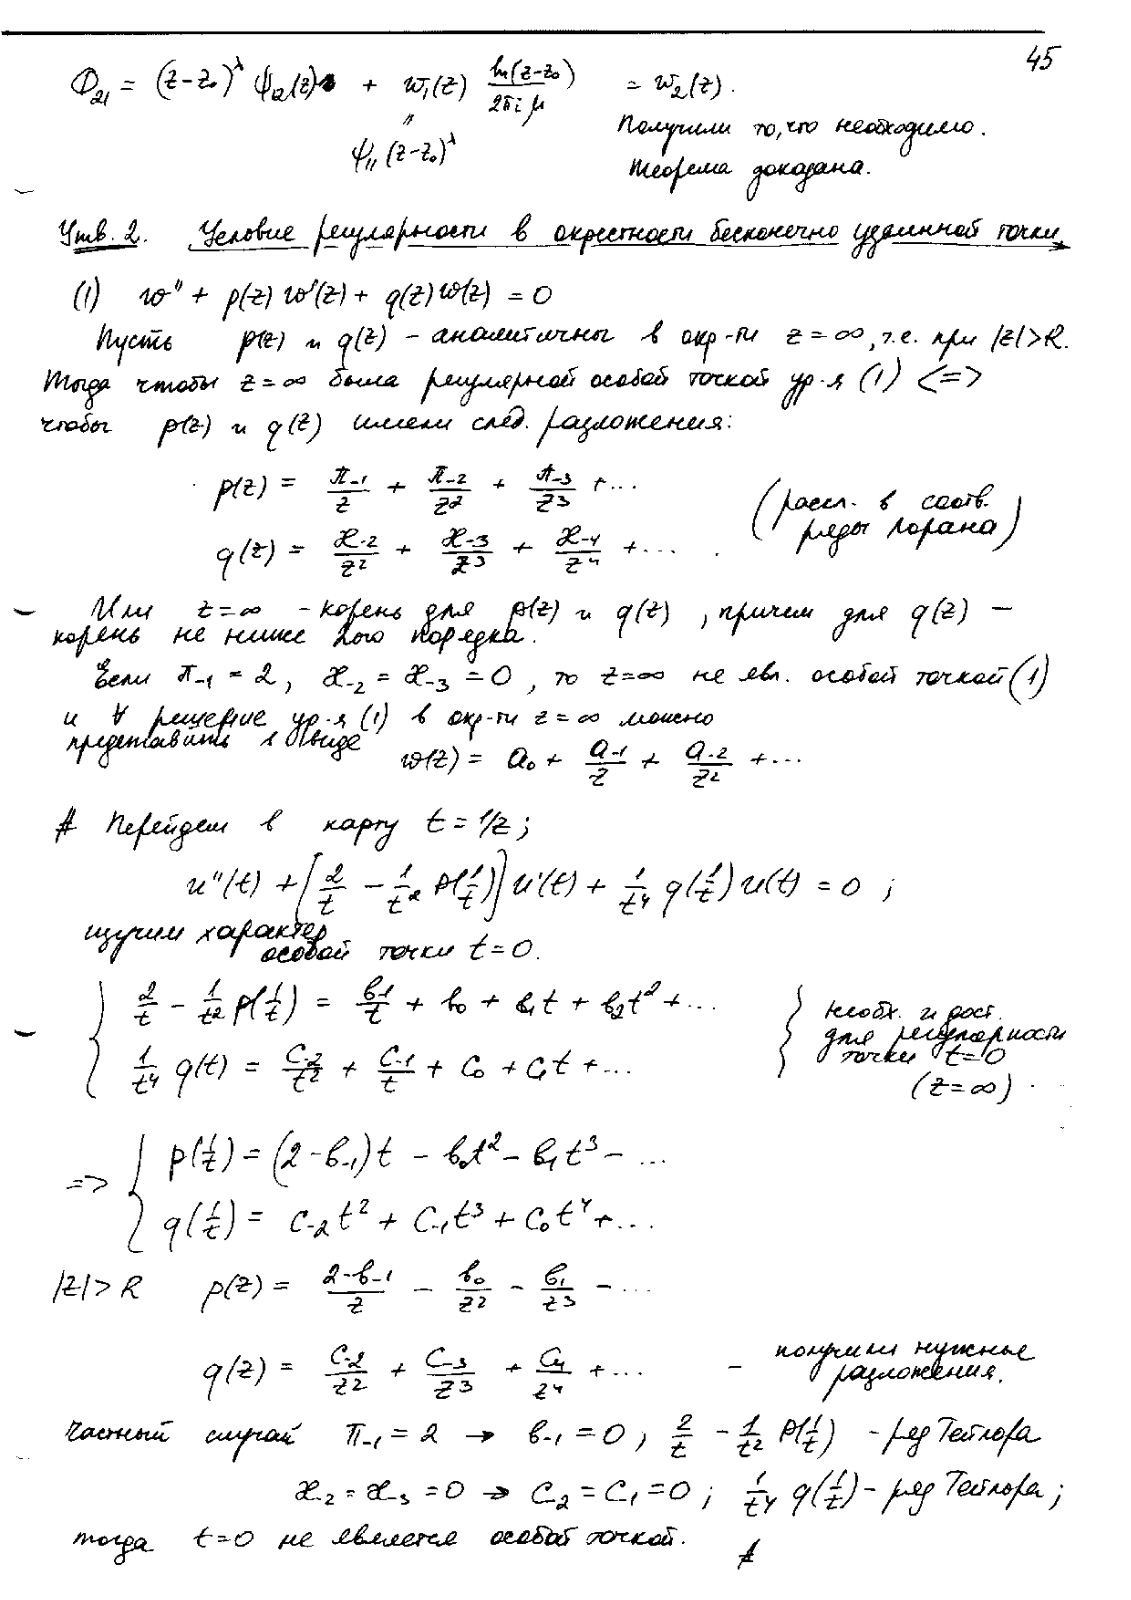 45
Φ₂₁ = (z-z₀)^λ ψ₁₂(z) + w₁(z) ln(z-z₀)/(2πi μ) = w₂(z).
Получили то, что необходимо.
" ψ₁₁ (z-z₀)^λ
Теорема доказана.
Утв. 2. Условие регулярности в окрестности бесконечно удалённой точки
(1) w'' + p(z) w'(z) + q(z) w(z) = 0
Пусть p(z) и q(z) - аналитичны в окр-ти z = ∞, т.е. при |z|>R.
Тогда чтобы z = ∞ была регулярной особой точкой ур-я (1) <=>
чтобы p(z) и q(z) имели след. разложения:
p(z) = π₋₁/z + π₋₂/z² + π₋₃/z³ + ...
(раскл. в соотв. ряды Лорана)
q(z) = æ₋₂/z² + æ₋₃/z³ + æ₋₄/z⁴ + ...
Или z = ∞ - корень для p(z) и q(z), причем для q(z) -
корень не ниже 2ого порядка.
Если π₋₁ = 2, æ₋₂ = æ₋₃ = 0, то z=∞ не явл. особой точкой (1)
и ∀ решение ур-я (1) в окр-ти z = ∞ можно
представить в виде w(z) = a₀ + a₋₁/z + a₋₂/z² + ...
# Перейдем в карту t = 1/z;
u''(t) + [2/t - 1/t² p(1/t)] u'(t) + 1/t⁴ q(1/t) u(t) = 0 ;
изучим характер
особой точки t = 0.
{ 2/t - 1/t² p(1/t) = b₋₁/t + b₀ + b₁t + b₂t² + ...
1/t⁴ q(t) = c₋₂/t² + c₋₁/t + c₀ + c₁t + ...
} необх. и дост.
для регулярности
точки t=0
(z=∞)
=> { p(1/t) = (2-b₋₁)t - b₀t² - b₁t³ - ...
q(1/t) = c₋₂t² + c₋₁t³ + c₀t⁴ + ...
|z|>R p(z) = (2-b₋₁)/z - b₀/z² - b₁/z³ - ...
q(z) = c₋₂/z² + c₋₃/z³ + c₄/z⁴ + ... - получили нужные
разложения.
Частный случай π₋₁ = 2 → b₋₁ = 0; 2/t - 1/t² p(1/t) - ряд Тейлора
æ₋₂ = æ₋₃ = 0 → c₋₂ = c₋₁ = 0 ; 1/t⁴ q(1/t) - ряд Тейлора;
тогда t=0 не является особой точкой. #